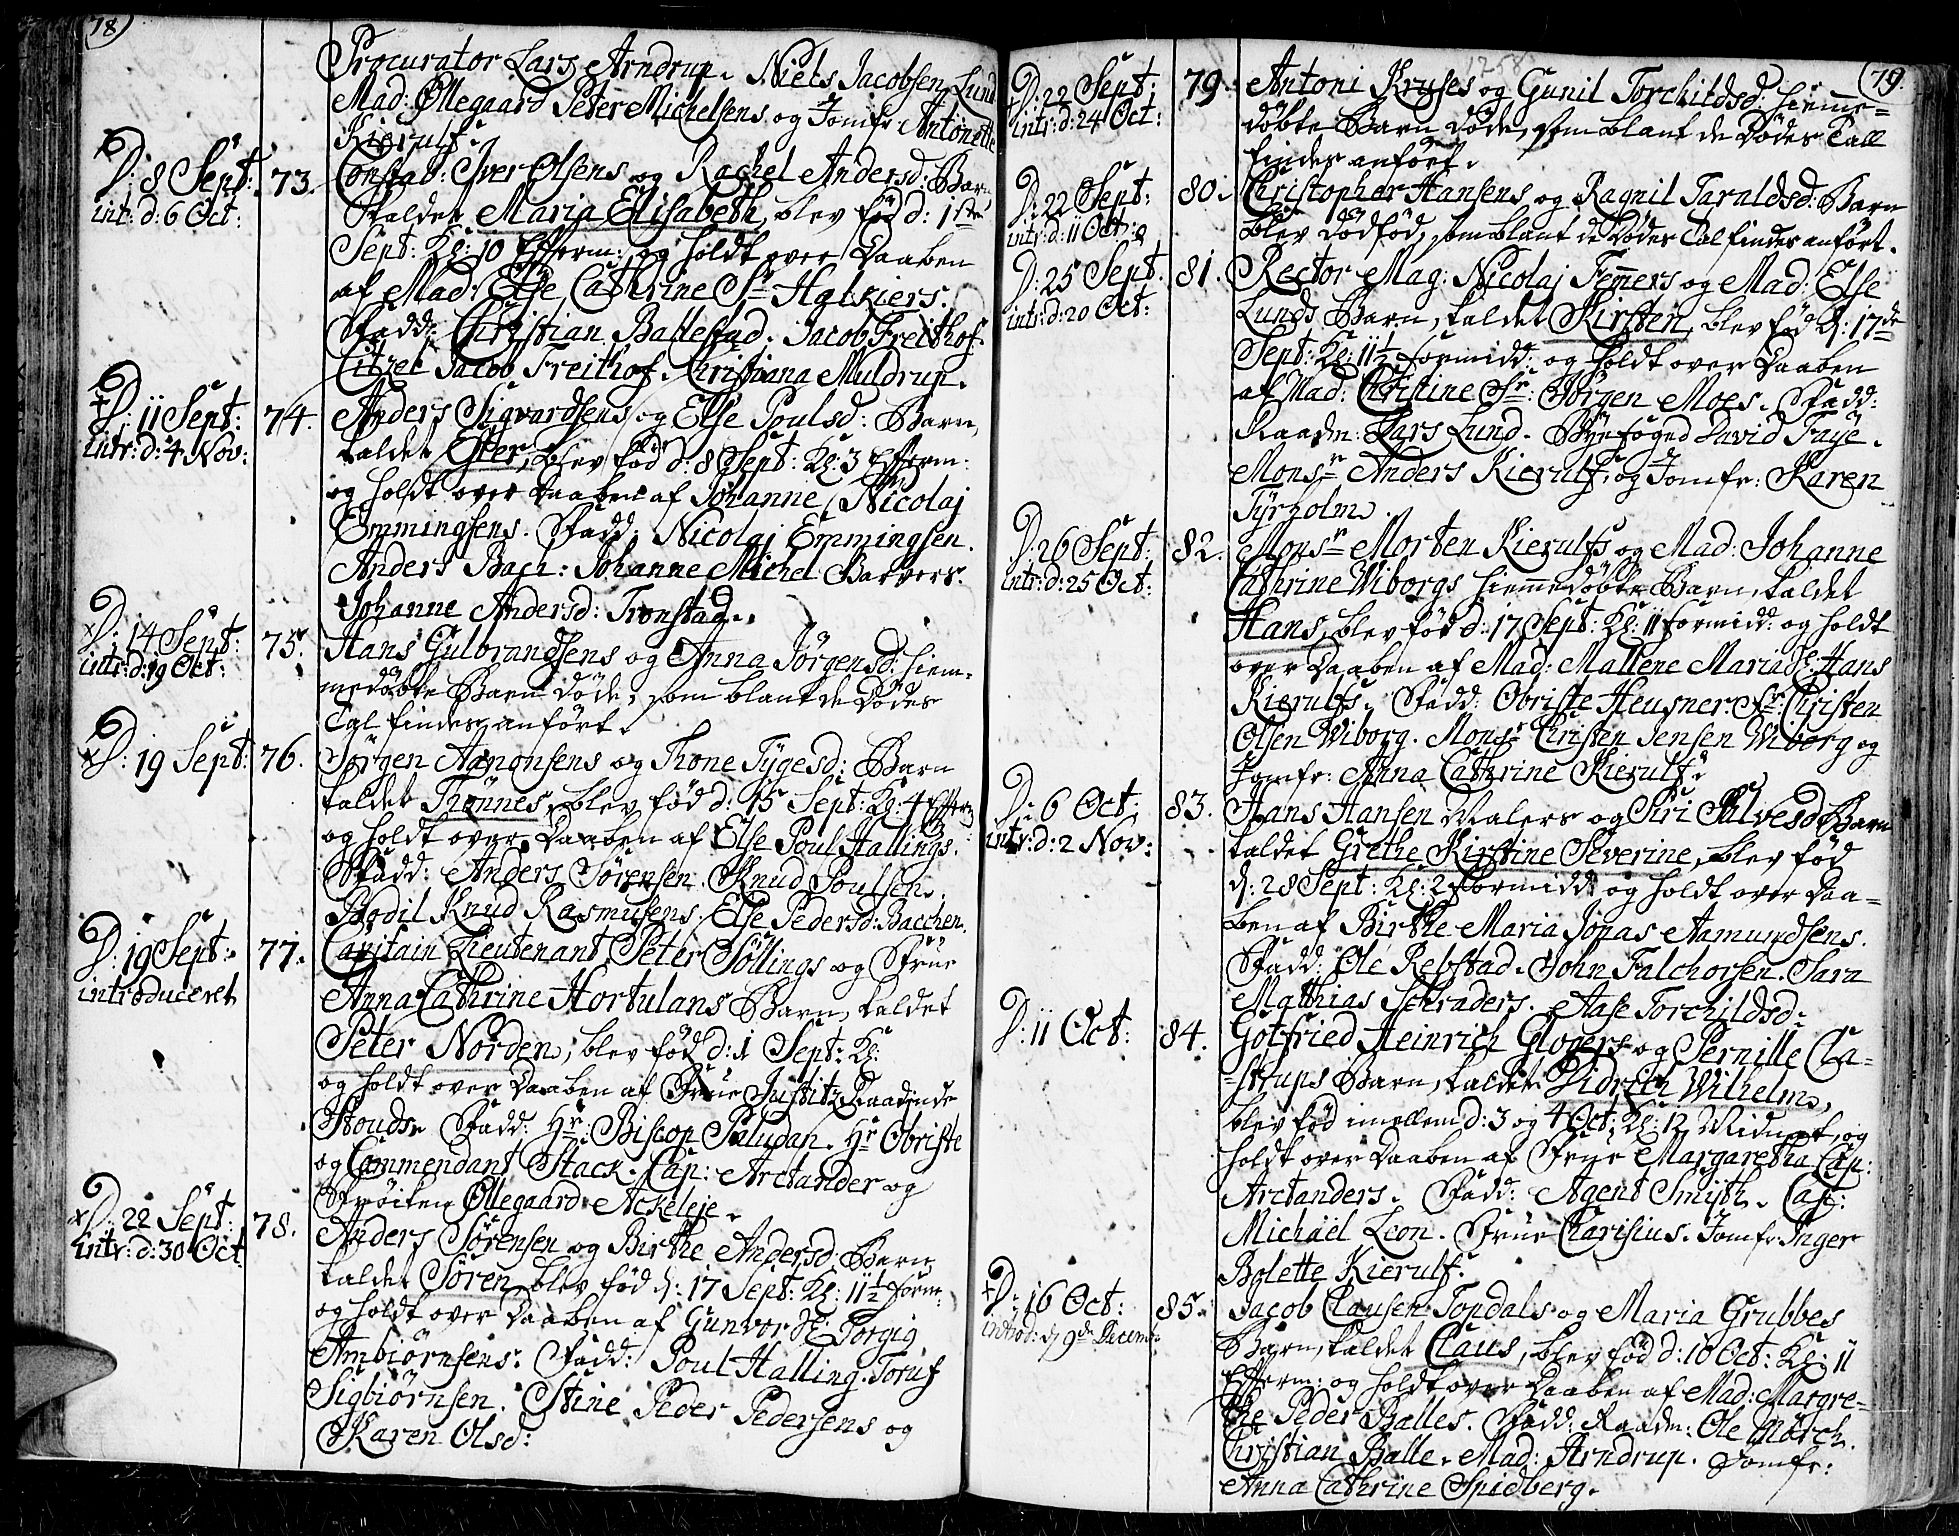 78)
Procurator Lars Arndrup. Niels Jacobsen Lund
Mad: Øllegaard Peter Michelsens og Jomfr Antonette
Kierulf.
D: 8 Sept: 73. Constab: Iver Olsens og Rachel Andersd: Barn
int: d: 6 Oct: kaldet Maria Elisabeth, blev fød d: 1ste
Sept: Kl: 10 Efterm: og holdt over Daaben
af Mad: Else Cathrine Sr
Fadd: Christian Ballestad. Jacob Freithof
Citzel Jacob Freithof. Christiana Muldrup.
+D: 11 Sept: 74. Anders Sigvardsens og Else Poulsd: Barn,
intr: d: 4 Nov: kaldet blev fød d: 8 Sept: Kl: 3 Efterm:
og holdt over Daaben af Johanne Nicolaj
Emmingsens. Fadd: Nicolaj Emmingsen.
Anders Bach: Johanne Michel Barvers.
Johanne Andersd: Tronstad.
xD: 14 Sept: 75. Hans Gulbrandsens og Anna Jörgensd: hiem-
intr: d: 19 Oct: medøbte Barn døde, som blant de Dödes
Tal findes anfört.
xD: 19 Sept: 76. Jörgen Aanonsens og Thone Tygesd: Barn
kaldet Thönnes, blev fød d: 15 Sept: Kl: 4 Efterm
og holdt over Daaben af Else Poul Hallings.
Fadd: Anders Sörensen. Knud Poulsen.
Bodil Knud Rasmusens. Else Pedersd: Bacchen.
D: 19 Sept: 77. Capitain Lieutenant Peter Söllings og Frue
introduceret Anna Cathrine Hortulans Barn, kaldet
Peter Norden, blev fød d: 1 Sept: Kl:
og holdt over Daaben af Frue Justitz Raadinde
Stouds. Fadd: Hr: Biscop Paludan. Hr Obriste
og Commendant Stack. Cap: Arctander og
Fröiken Øllegaard Ackeleje.
xD: 22 Sept: 78. Anders Sörensen og Birthe Andersd: Barn
intr: d: 30 Oct kaldet Sören, blev fød d: 17 Sept: Kl: 11½ Form:
og holdt over Daaben af Gunvor Torgig
Ambiörnsens. Fadd: Poul Halling. Toruf
Sigbiörnsen. Stine Peder Pedersens og
Karen Olsd:
1758. 79.
+D: 22 Sept: 79. Antoni Kruses og Gunil Torchildsd: hiemme-
intr: d: 24 Oct: døbte Barn døde, som blant de Dødes Tall
findes anfört.
D: 22 Sept: 80. Christopher Hansens, og Ragnil Taraldsd: Barn
intr: d: 11 Oct: blev dødfød, som blant de Dødes Tal findes anfört.
D: 25 Sept. 81. Rector Mag: Nicolaj Femers og Mad: Else
intr: d: 20 Oct: Lunds Barn, kaldet Kirsten, blev fød d: 17de
Sept: Kl: 11½ formidd: og holdt over Daaben
af Mad: Christine Sr: Jörgen Moes. Fadd:
Raadm: Lars Lund. Byefoged David Faÿe.
Monsr Anders Kierulf, og Jomfr: Karen
Tyrholm.
D: 26 Sept: 82. Monsr Morten Kierulfs og Mad: Johanne
intr: d: 25 Oct: Cathrine Wiborgs hiemmedøbte Barn, kaldet
Hans, blev fød d: 17 Sept: Kl: 11 formidd: og holdt
over Daaben af Mad: Mallene Maria Sl: Hans
Kierulfs. Fadd: Obriste Heusner. Sr: Christen
Olsen Wiborg. Monsr Christen Jensen Wiborg og
Jomfr: Anna Cathrine Kierulf.
D: 6 Oct: 83. Hans Hansen Malers og Siri Salvesd Barn
intr: d: 2 Nov: kaldet Grethe Kirstine Severine, blev fød
d: 28 Sept: Kl: 2 formidd: og holdt over Daa-
ben af Birthe Maria Jonas Aamundsens.
Fadd: Ole Rebstad. John Falchorsen. Sara
Matthias Schraders. Aase Torchildsd:
D: 11 Oct: 84. Gotfried Heinrich Glogers og Pernille Ca-
-strups Barn, kaldet Didrich Wilhelm,
blev fød imellem d: 3 og 4 Oct: Kl: 12 Midnat, og
holdt over Daaben af Frue Margaretha Cap:
Arctanders. Fadd: Agent Smÿth. Cap:
Michaël Leon. Frue Charisius. Jomfr: Inger
Bolette Kierulf.
+D: 16 Oct: 85. Jacob Clausen Topdals og Maria Grubbes
introd: d 9de Decemb: Barn, kaldet Claus, blev fød d: 10 Oct: Kl: 11
Efterm: og holdt over Daaben af Mad: Margre-
the Peder Balles. Fadd: Raadm: Ole Mörch.
Christian Balle. Mad: Arndrup. Jomfr:
Anna Cathrine Spidberg.